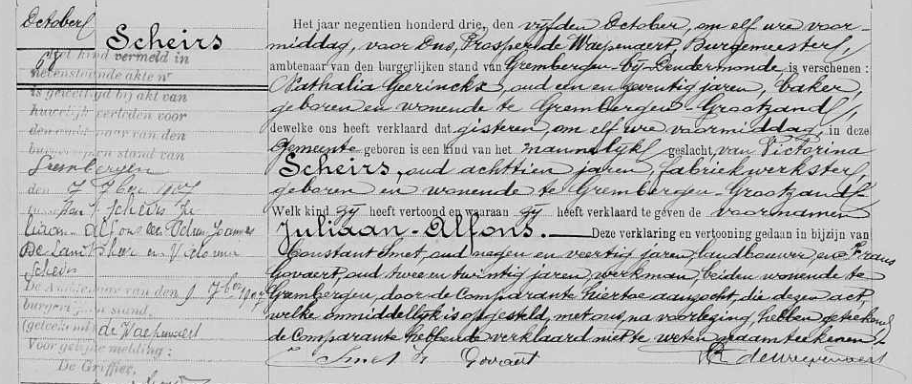 October
Scheirs
Het kind vermeld in
nevenstaande akte n°
is gewettigd bij akt van
huwelijk verleden voor
den van den
burger stand van
Grembergen
den 7 7ber 1907
Scheirs Ju
liaan-Alfons
De Landtsheer en Victorina
Scheirs
De van den 9 7ber 1907
burger stand,
(geteekend) de Waepenaert
Voor gelijke melding :
De Griffier,
Het jaar negentien honderd drie, den vijfden October, om elf ure voor-
middag, voor Ons, Prosper de Waepenaert, Burgemeester,
ambtenaar van den burgerlijken stand van Grembergen-bij-Dendermonde is verschenen :
Nathalia Geerinckx, oud een en zeventig jaren, baker,
geboren en wonende te Grembergen-Grootzand,
dewelke ons heeft verklaard dat gisteren, om elf ure voormiddag, in deze
Gemeente geboren is een kind van het mannelijk geslacht, van Victorina
Scheirs, oud achttien jaren, fabriekwerkster,
geboren en wonende te Grembergen-Grootzand.
Welk kind zij heeft vertoond en waaraan zij heeft verklaard te geven de voornamen
Juliaan-Alfons. — Deze verklaring en vertooning gedaan in bijzijn van
Constant Smet, oud negen en veertig jaren, landbouwer, en Frans
Govaert, oud twee en twintig jaren, werkman, beiden wonende te
Grembergen, door de Comparante hiertoe aanzocht, die dezen act,
welke onmiddellijk is opgesteld, met ons, na voorlezing, hebben geteekend,
de Comparante hebbende verklaard niet te weten naamteekenen.
C Smet Fr Govaert de Waepenaert